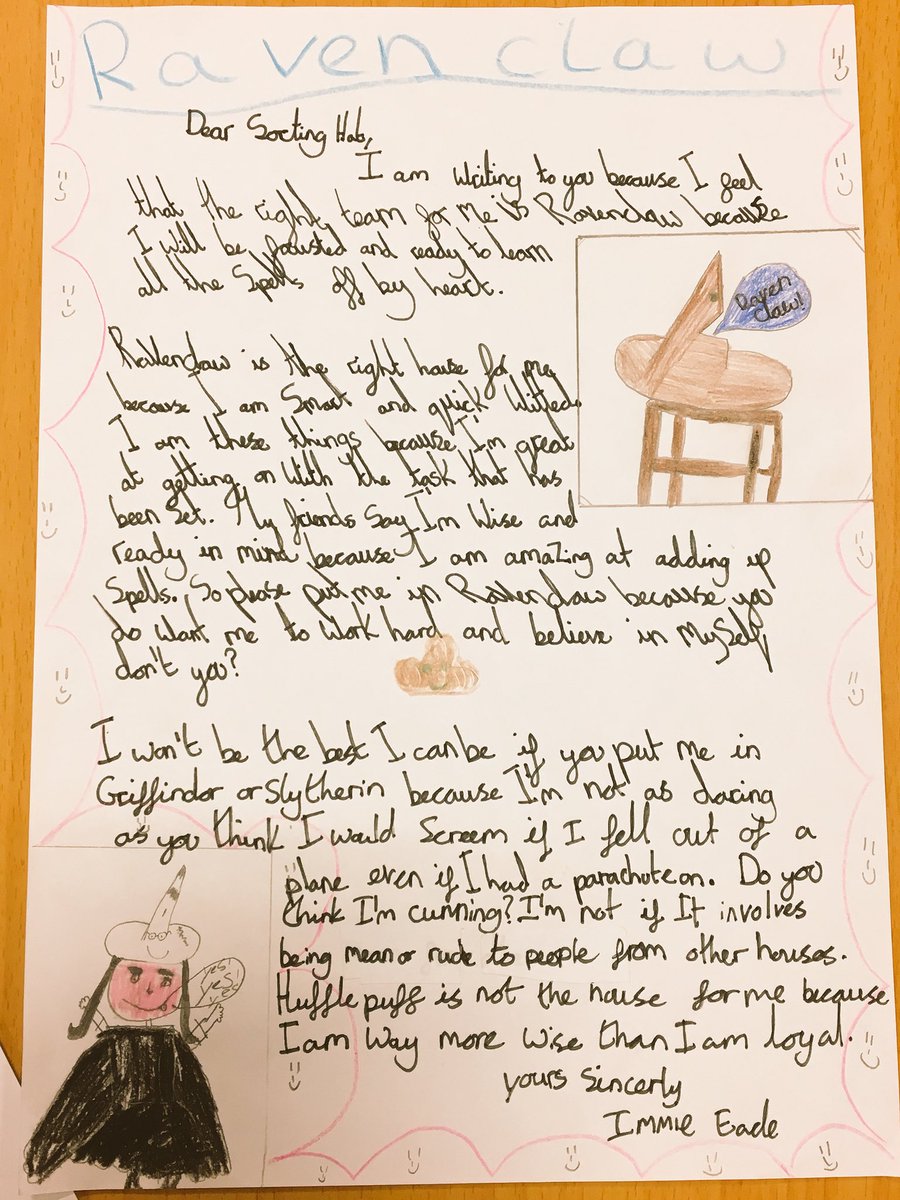 Ravenclaw
Dear Sorting Hab,
I am writing to you because I feel
that the right team for me is Ravenclaw because
I will be focusted and ready to learn
all the Spells off by heart.
Raven
claw!
Ravenclaw is the right house for me
because I am Smart and quick witted.
I am these things because I'm great
at getting on With the task that has
been set. My friends Say I'm Wise and
ready in mind because I am amazing at adding up
Spells. So please put me in Ravenclaw because you
do want me to work hard and believe in MySelf,
don't you?
I won't be the best I can be if you put me in
Griffindor or Slytherin because I'm not as daring
as you think I would Screem if I fell out of a
plane even if I had a parachute on. Do you
think I'm cunning? I'm not if It involves
being mean or rude to people from other houses.
Hufflepuff is not the house for me because
I am way more wise than I am loyal.
yes!
yes!
yes!
yours Sincerly
Immie Eade